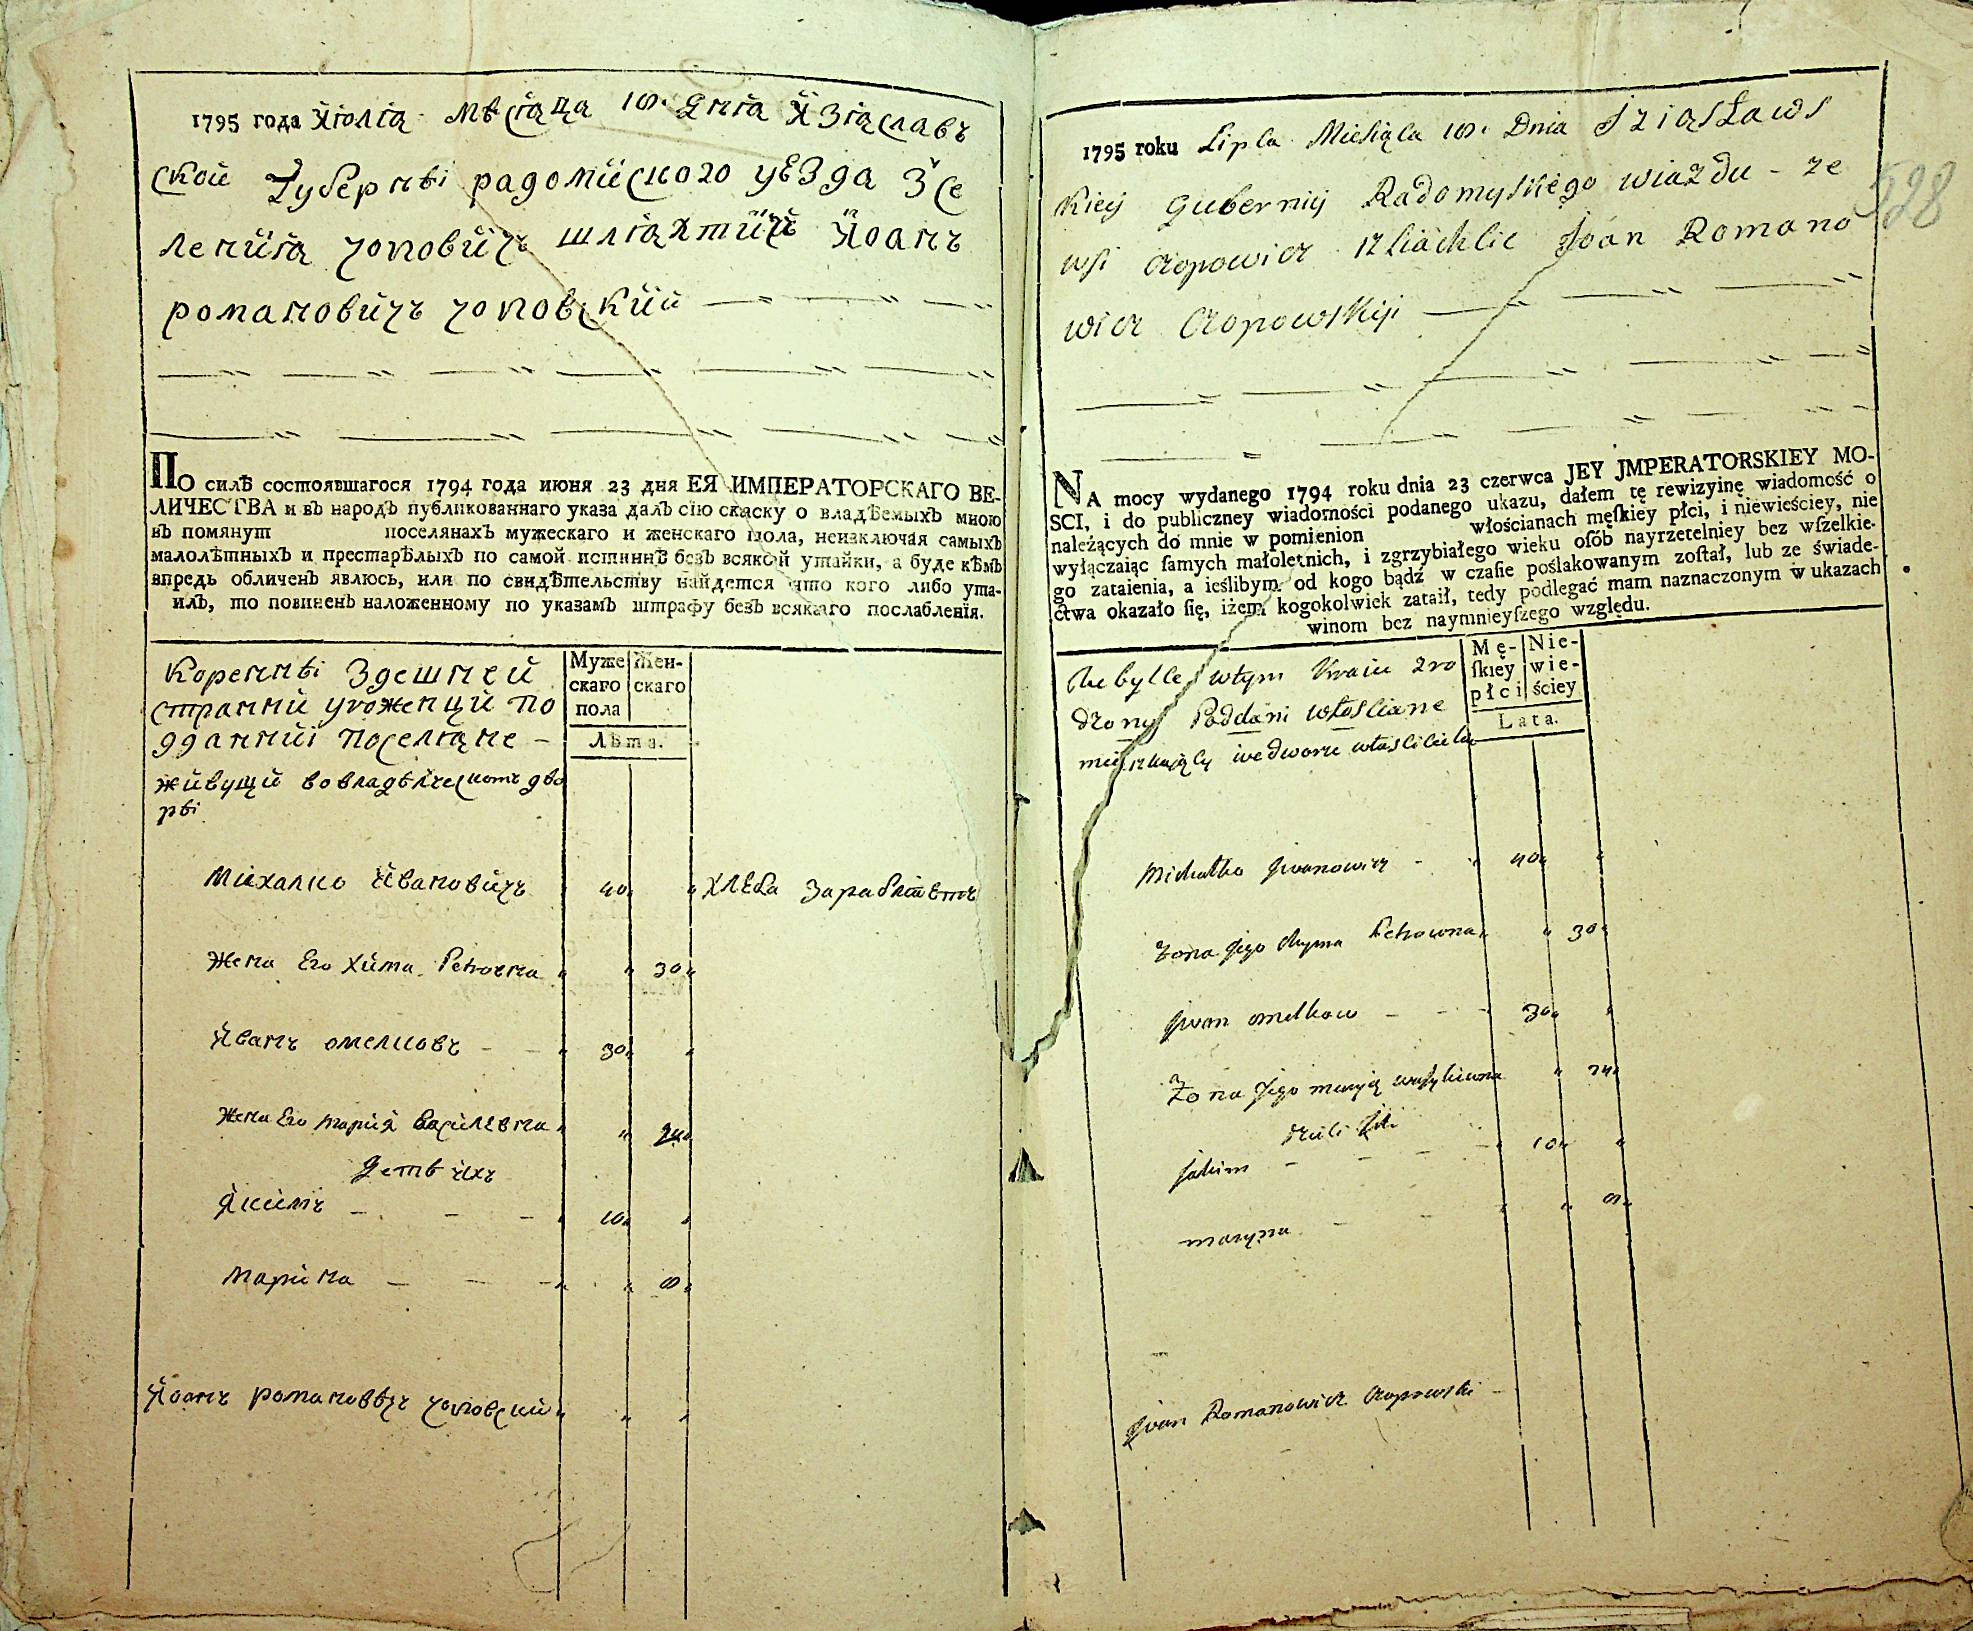 1795 года Июлія мѣсяца 10. дня Изіаславъ
ской Губернѣі радомиского уѣзда Зсе
ленїя чоповичъ шляхтичъ Иоанъ
романовичъ чоповский
По силѣ состоявшагося 1794 года июня 23 дня ЕЯ ИМПЕРАТОРСКАГО ВЕ-
ЛИЧЕСТВА и въ народъ публикованнаго указа далъ сію скаску о владѣемыхъ мною
въ помянут поселянахъ мужескаго и женскаго пола, неизключая самыхъ
малолѣтныхъ и престарѣлыхъ по самой истиннѣ безъ всякой утайки, а буде кѣмъ
впредь обличенъ явлюсь, или по свидѣтельству найдется что кого либо ута-
илъ, то повиненъ наложенному по указамъ штрафу безъ всякаго послабленія.
Кореннѣі Здешней
странни уроженци По
дданниі Поселяне –
живущи вовладѣлческомъ дво
рѣі
Муже
скаго
пола
Жен-
скаго
Лѣта.
Михалко Ивановичъ 40 хлеба зараблѣетъ
Жена Его Хима Petrовна 30
Иванъ омелковъ 30
Жена Его Мария Василевна 24
Детѣ ихъ
Якимъ 10
Марина 8
Иоанъ романовѣчъ чоповский
528
1795 roku Lipca Miesiąca 10. Dnia Iziasławs
kiey Gubernij Radomyskiego wiazdu - ze
wsi Czopowicz szliachcic Joan Romano
wicz Czopowskiji
NA mocy wydanego 1794 roku dnia 23 czerwca JEY JMPERATORSKIEY MO-
SCI, i do publiczney wiadomości podanego ukazu, dałem tę rewizyinę wiadomość o
należących do mnie w pomienion włościanach męſkiey płci, i niewieściey, nie
wyłączaiąc ſamych małoletnich, i zgrzybiałego wieku oſób nayrzetelniey bez wſzelkie-
go zataienia, a ieślibym od kogo bądź w czaſie poślakowanym zoſtał, lub ze świade-
ctwa okazało ſię, iżem kogokolwiek zataił, tedy podlegać mam naznaczonym w ukazach
winom bez naymnieyſzego względu.
Mę-
ſkiey
płci
Nie-
wie-
ściey
Lata.
wtym Kraiu zro
dzony Poddani włosciane
mieszkaiący we dworu własciciela
Michałko Jwanowicz 40
żona Jego Chyma Petrowna 30
Jwan omelkow 30
Żona Jego maryia wasylewna 24
dzieci Jch
Jakim 10
maryna 8
Jwan Romanowicz Czopowski